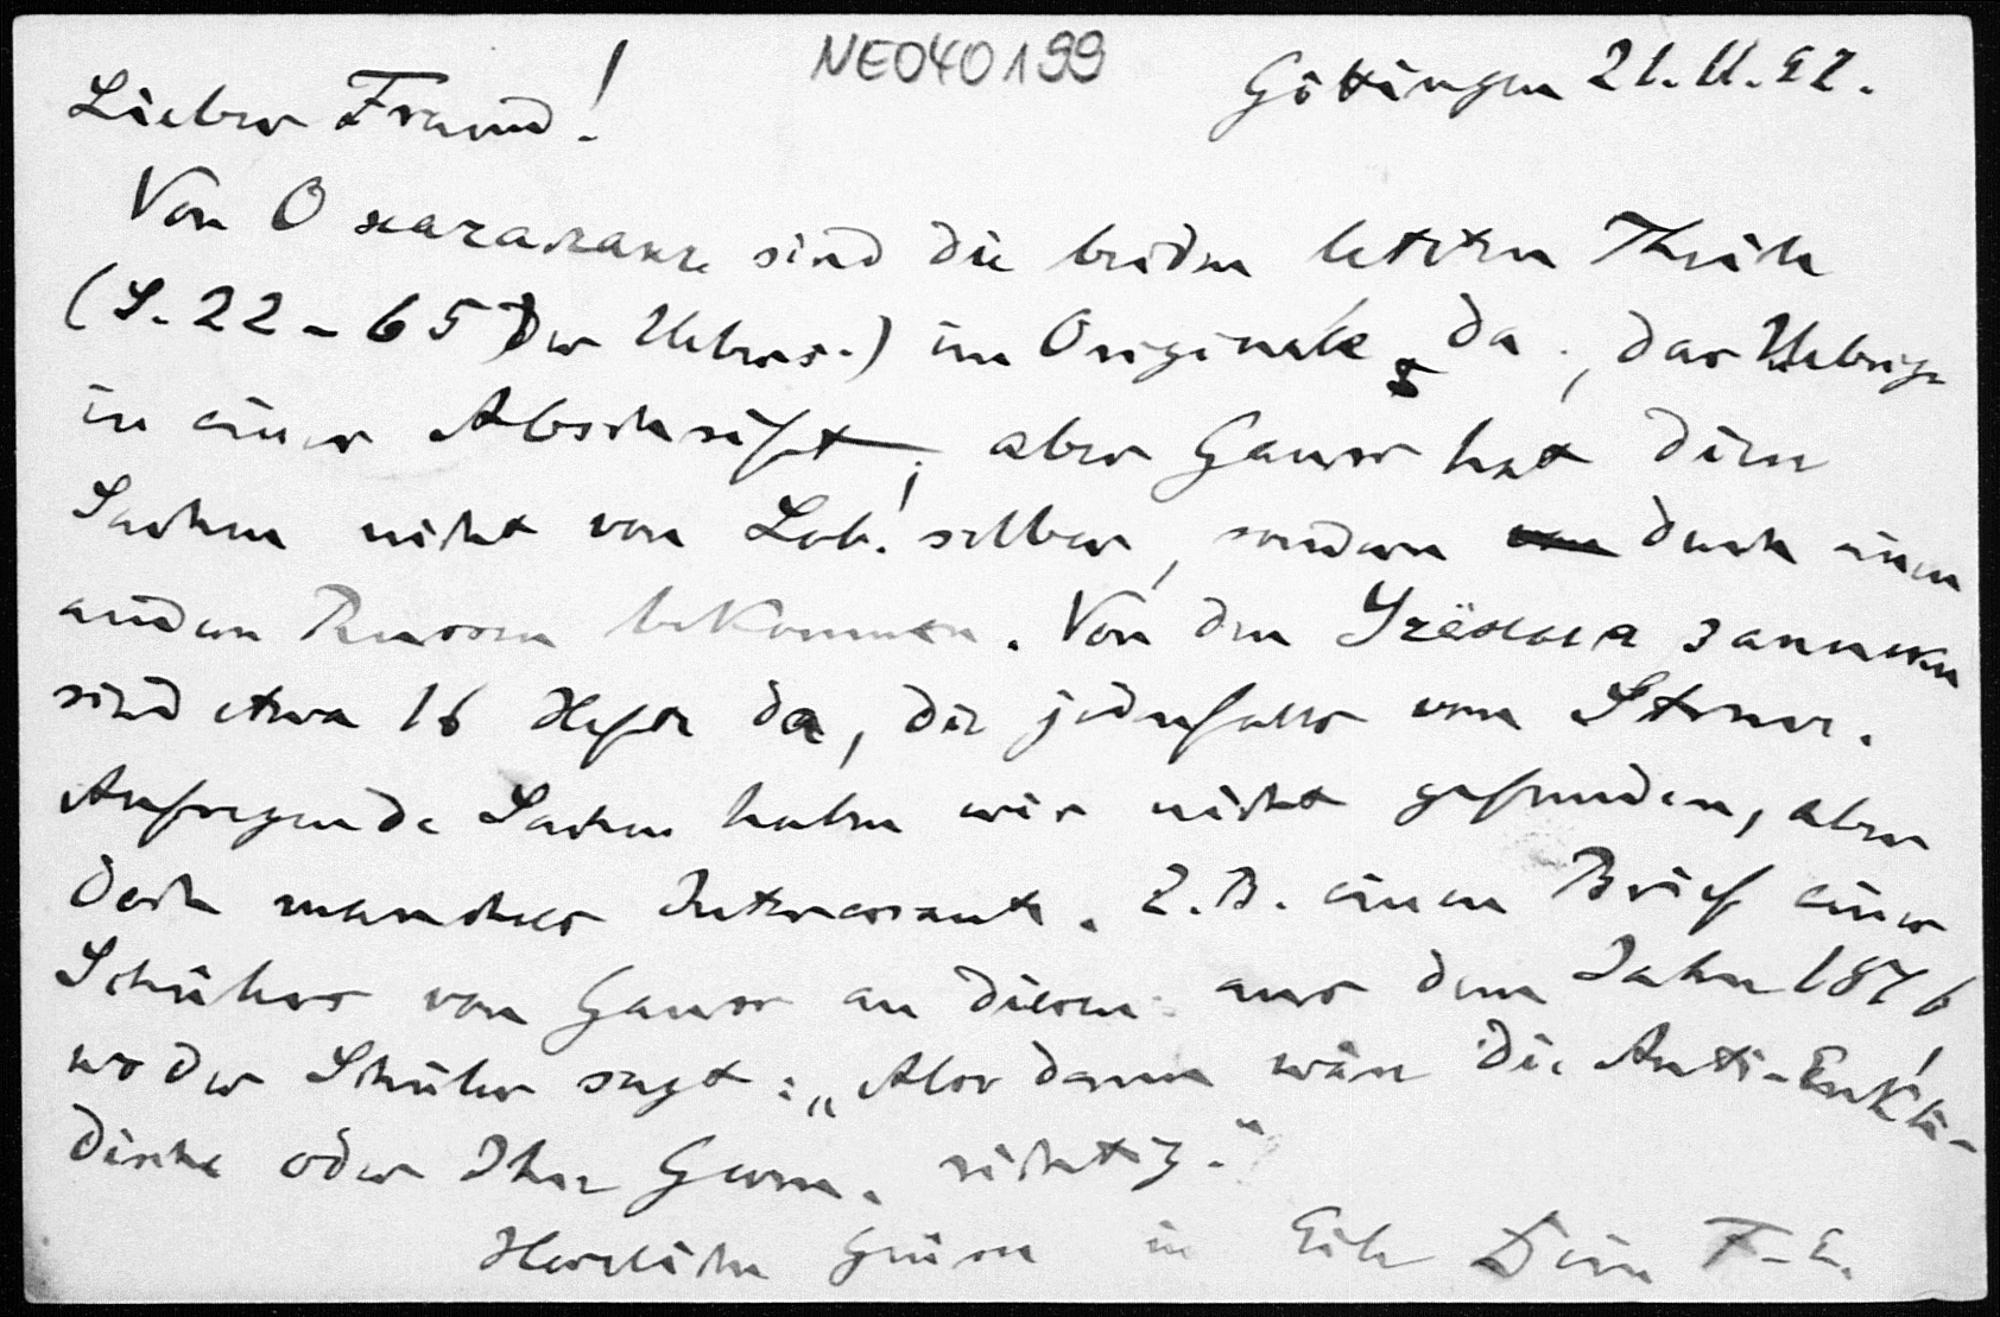 NE040199
Göttingen 21. II. 97.
Lieber Freund!
Von О началахъ sind die beiden letzten Theile
(S. 22-65 der Uebers.) im Original da, das Uebrige
in einer Abschrift; aber Gauss hat diese
Sachen nicht von Lob. selber, sondern durch einen
andern Russen bekommen. Von den Учёныя записки
sind etwa 16 Hefte da, die jedenfalls von Struve.
Aufregende Sachen haben wir nicht gefunden, aber
doch manches Interessante. Z.B. einen Brief eines
Schülers von Gauss an diesen aus dem Jahre
wo der Schüler sagt: „Also dann wäre die Anti-Eukli-
dische oder Ihre Geom. richtig."
Herzliche Grüsse in Eile Dein F. E.